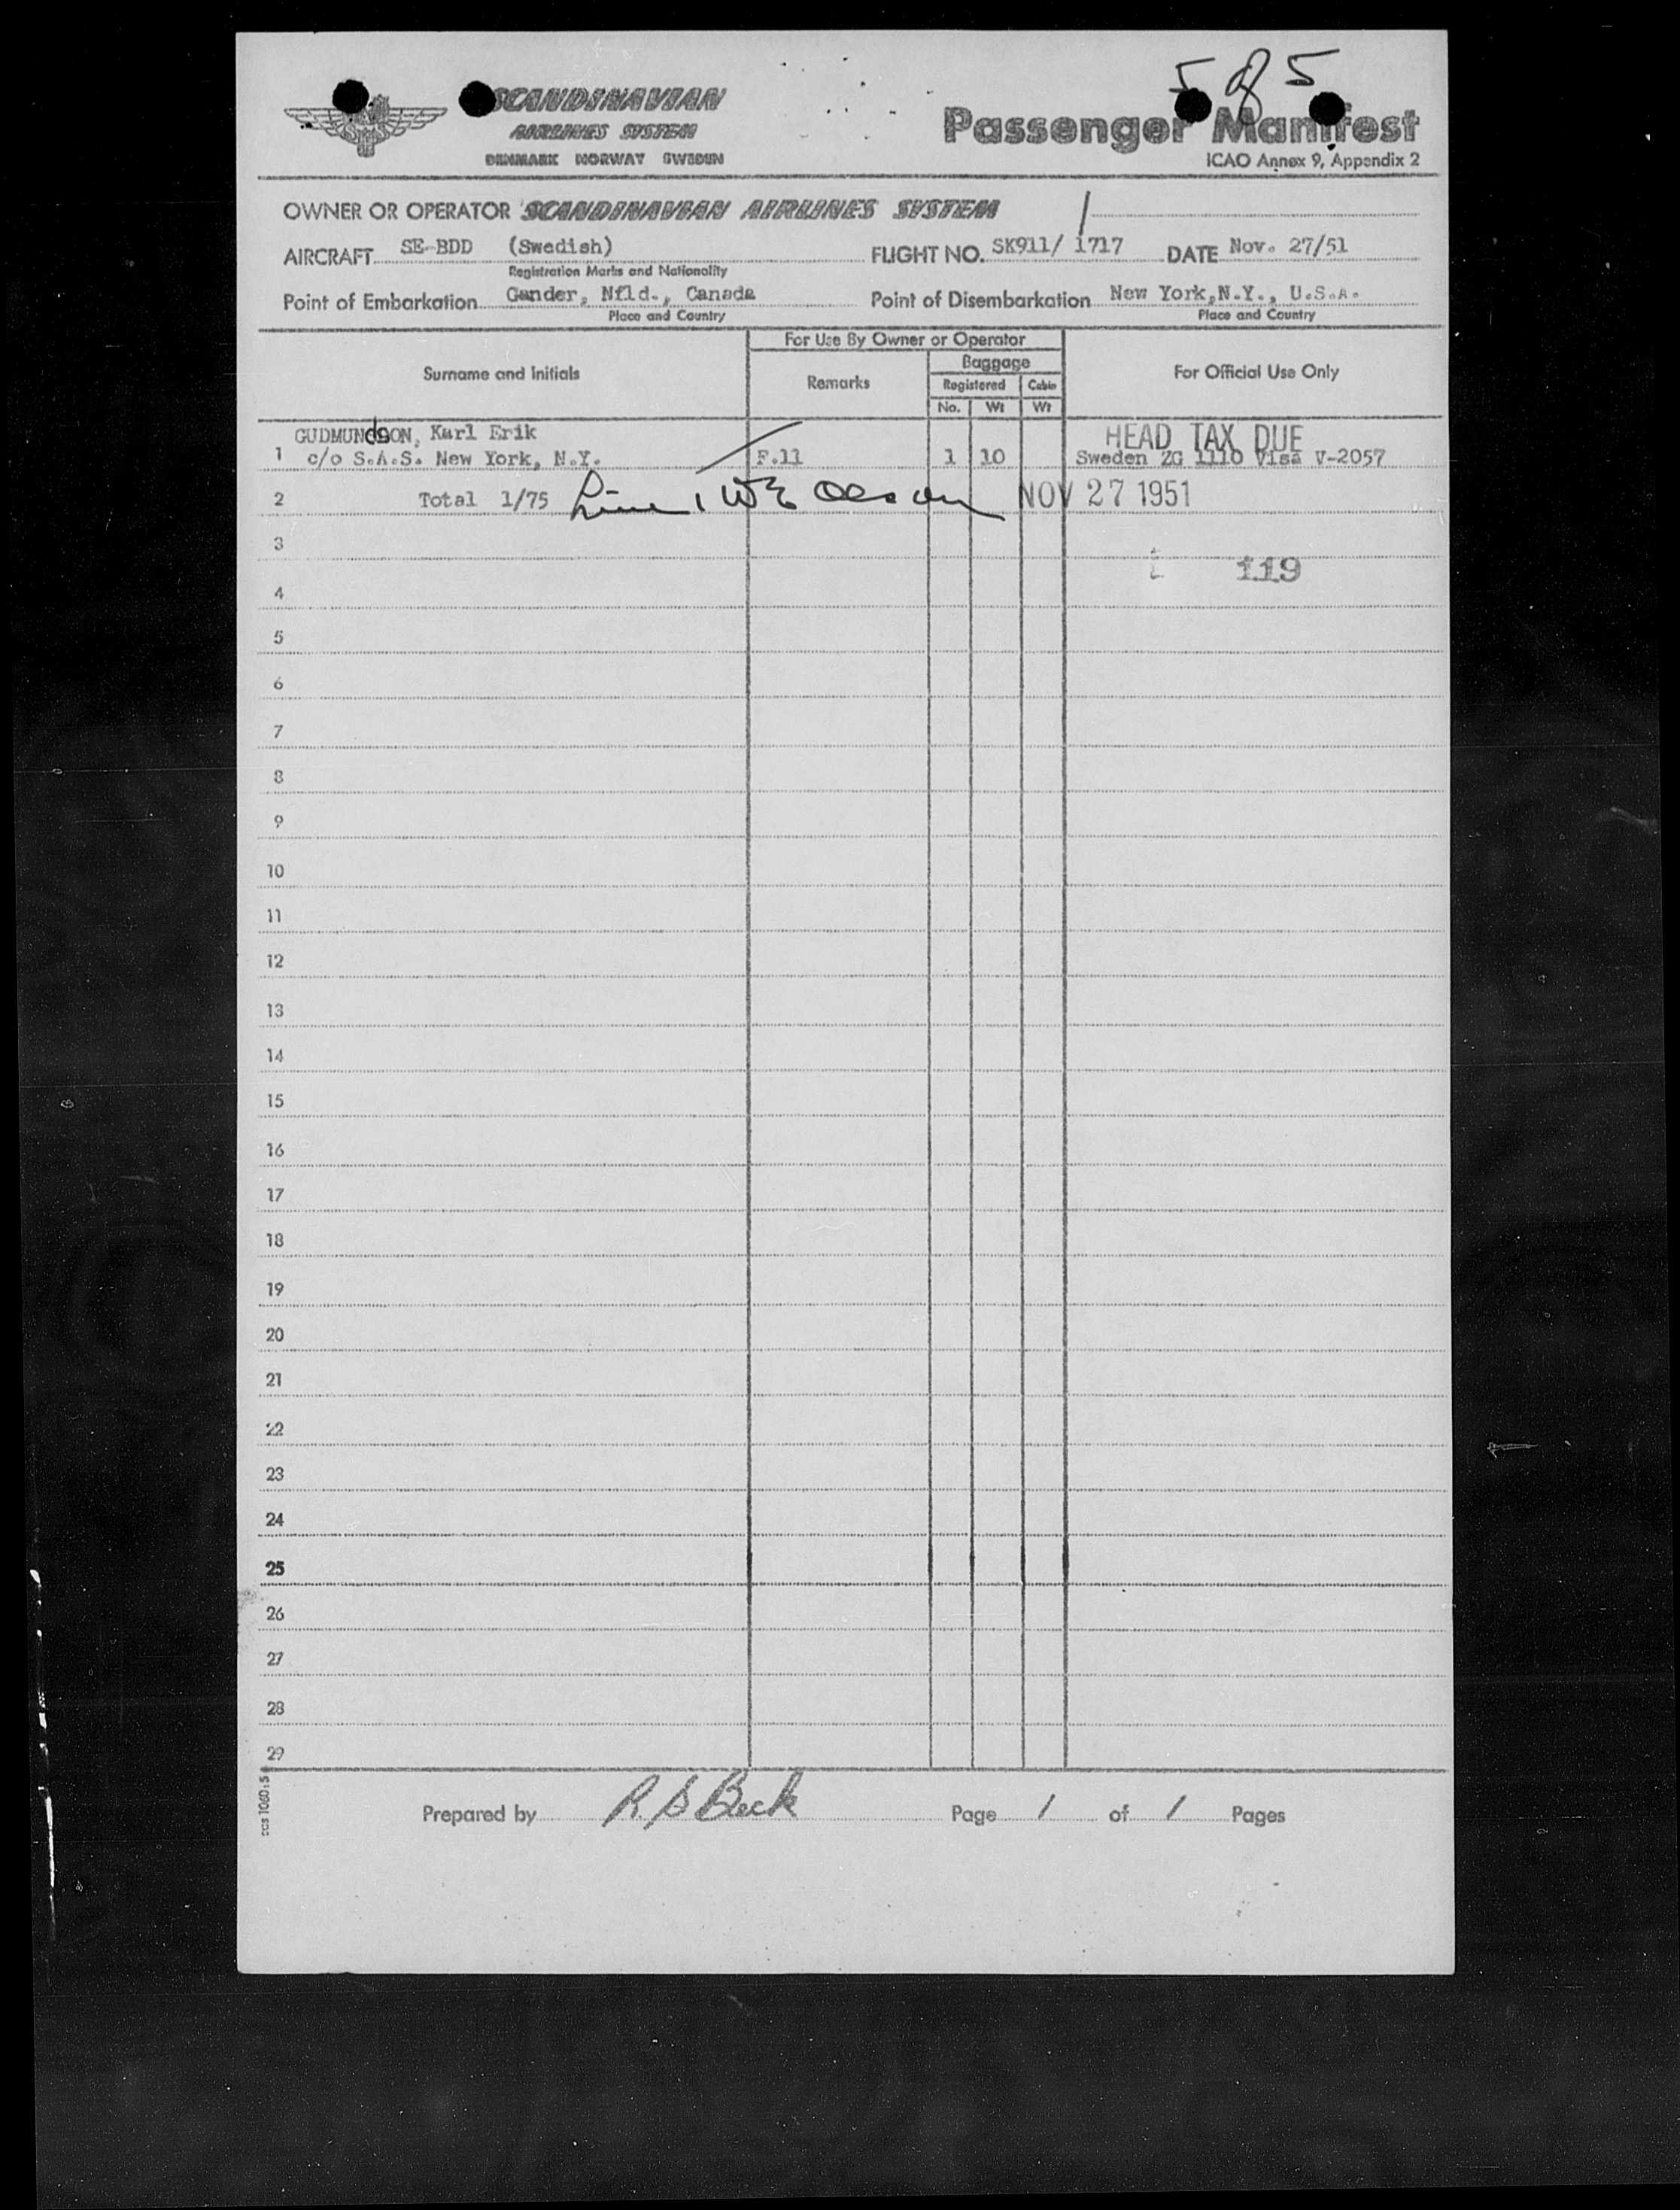 5 of 5
SCANDINAVIAN
AIRLINES SYSTEM
DENMARK NORWAY SWEDEN
Passenger Manifest
ICAO Annex 9, Appendix 2
OWNER OR OPERATOR SCANDINAVIAN AIRLINES SYSTEM /
AIRCRAFT SE-BDD (Swedish) FLIGHT NO. SK911/ 1717 DATE Nov. 27/51
Registration Marks and Nationality
Point of Embarkation Gander, Nfld., Canada Point of Disembarkation New York,N.Y., U.S.A.
Place and Country Place and Country
For Use By Owner or Operator
Surname and Initials Remarks Baggage For Official Use Only
Registered Cabin
No. Wt Wt
GUDMUNDSON, Karl Erik HEAD TAX DUE
1 c/o S.A.S. New York, N.Y. F.11 1 10 Sweden ZG 1110 Visa V-2057
2 Total 1/75 Line 1 WE Olson NOV 27 1951
3
119
4
5
6
7
8
9
10
11
12
13
14
15
16
17
18
19
20
21
22
23
24
25
26
27
28
29
Prepared by R S Beck Page 1 of 1 Pages